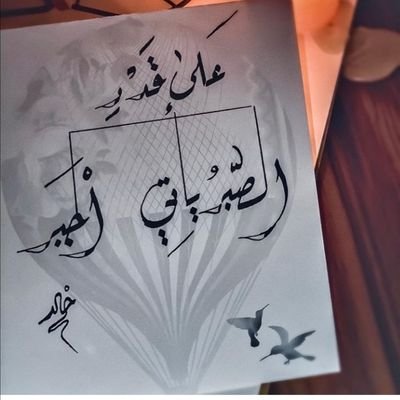 عَلىٰ قَدْرِ
الصَّبرُ ياتي أجبر
خالد